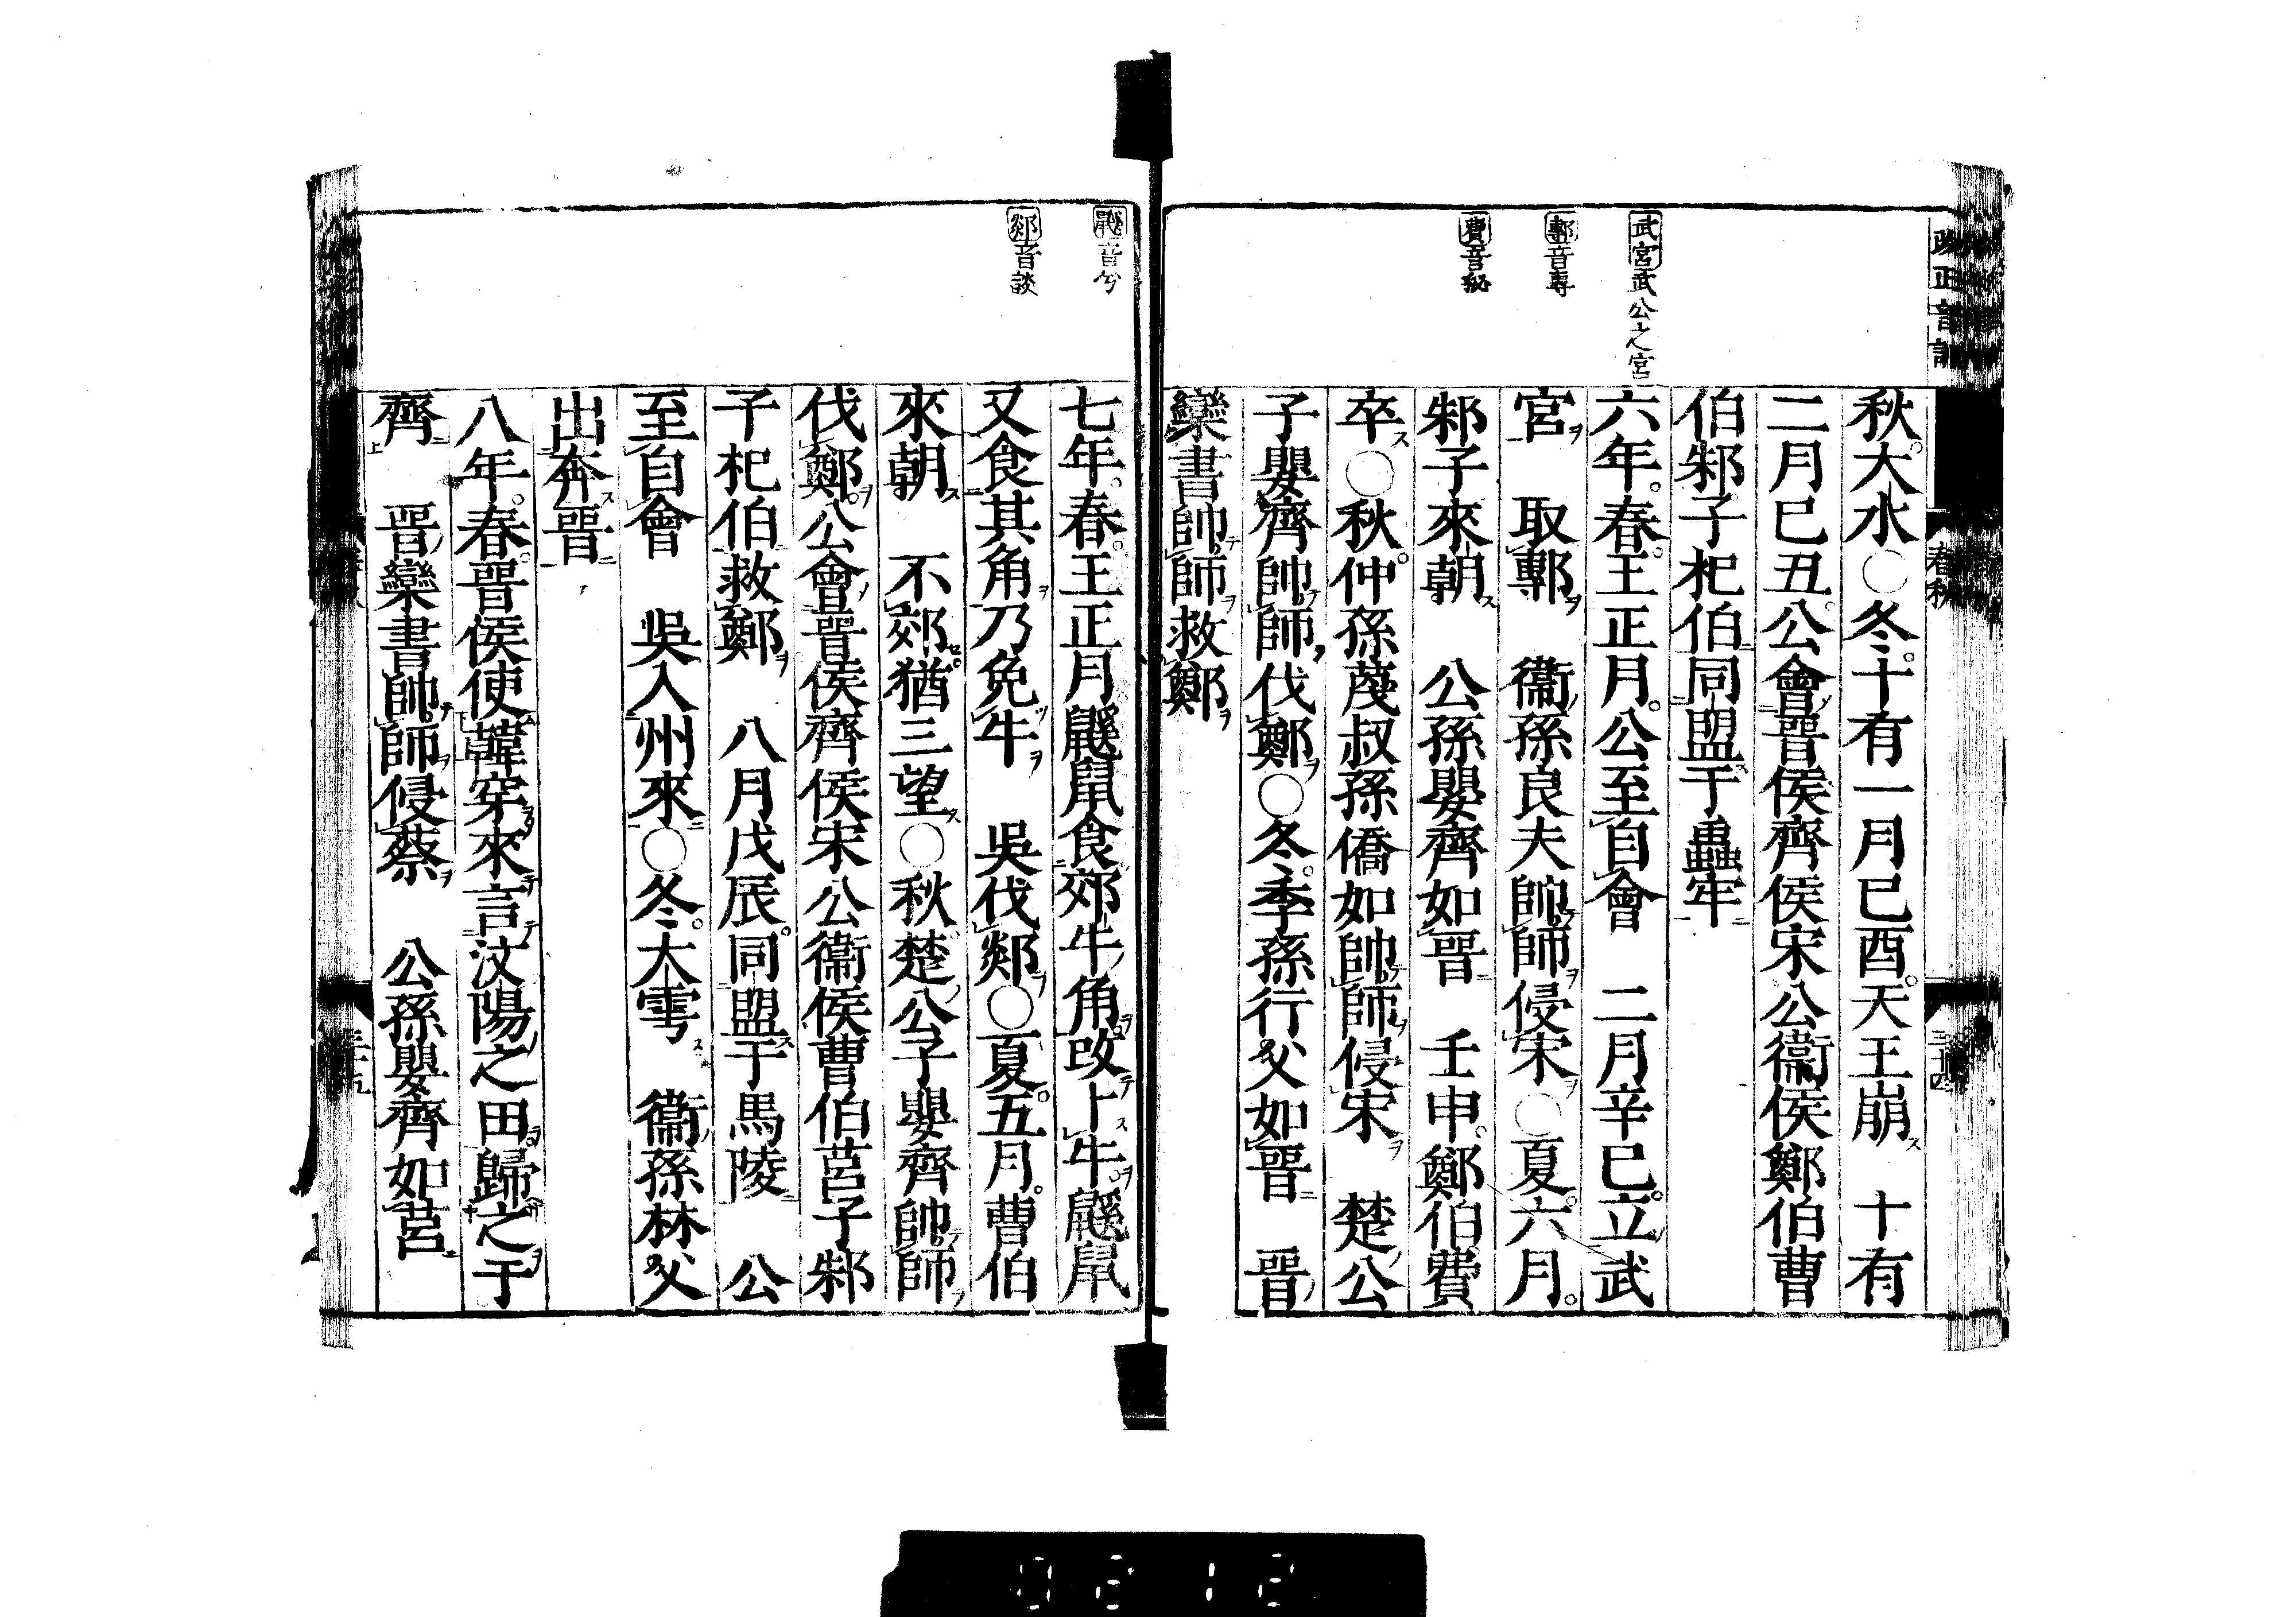 改正音訓
春秋
三十四
武宮武公之宮
鄟音専
費音秘
秋大水○冬十有一月己酉天王崩 十有
二月己丑公會晉侯齊侯宋公衞侯鄭伯曹
伯邾子杞伯同盟于蟲牢
六年春王正月公至自會 二月辛巳立武
宮 取鄟 衞孫良夫帥師侵宋○夏六月
邾子來朝 公孫嬰齊如晉 壬申鄭伯費
卒○秋仲孫蔑叔孫僑如帥師侵宋 楚公
子嬰齊帥師伐鄭○冬季孫行父如晉 晉
欒書帥師救鄭
鼷音兮
郯音談
七年春王正月鼷鼠食郊牛角改卜牛鼷鼠
又食其角乃免牛 吳伐郯○夏五月曹伯
來朝 不郊猶三望○秋楚公子嬰齊帥師
伐鄭公會晉侯齊侯宋公衞侯曹伯莒子邾
子杞伯救鄭 八月戊辰同盟于馬陵 公
至自會 吳入州來○冬大雩 衞孫林父
出奔晉
八年春晉侯使韓穿來言汶陽之田歸之于
齊 晉欒書帥師侵蔡 公孫嬰齊如莒